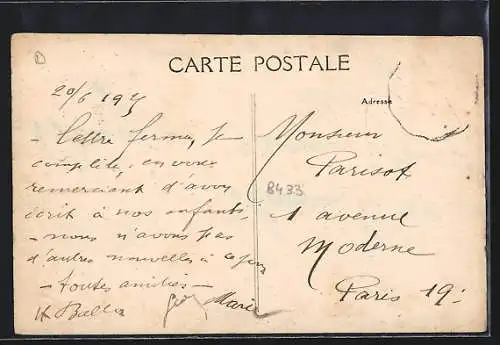 CARTE POSTALE
Adresse
20/6 19
- lettre
complète, en vous
remerciant d'avoir
écrit à nos enfants,
- nous n'avons pas
d'autres nouvelles à ce jour
- toutes amitiés -
Marie
Monsieur
Parisot
8433
1 avenue
Moderne
Paris 19